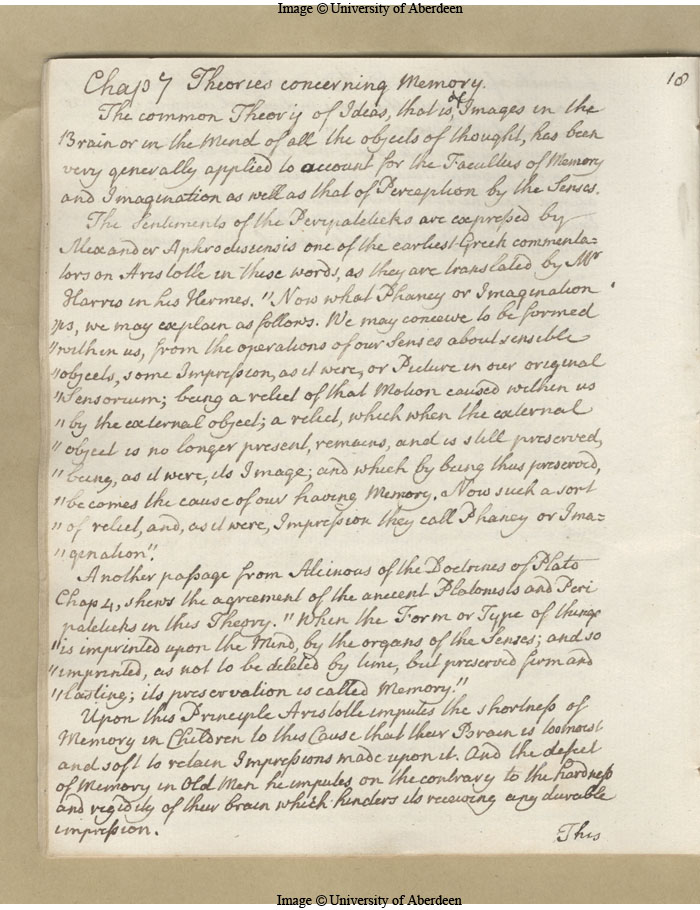 Image © University of Aberdeen
10
Chap 7 Theories concerning Memory.
The common Theory of Ideas, that is of Images in the
Brain or in the Mind of all the objects of thought, has been
very generally applied to account for the Faculties of Memory
and Imagination as well as that of Perception by the Senses.
The Sentiments of the Peripateticks are expressed by
Alexander Aphrodisiensis one of the earliest Greek commenta=
tors on Aristotle in these words, as they are translated by Mr
Harris in his Hermes. "Now what Phancy or Imagination
"is, we may explain as follows. We may conceive to be formed
"within us, from the operations of our Senses about sensible
"objects, some Impression, as it were, or Picture in our original
"Sensorium; being a relict of that Motion caused within us
"by the external object; a relict, which when the external
"object is no longer present, remains, and is still preserved,
"being, as it were, its Image; and which by being thus preserved,
"becomes the cause of our having Memory. Now such a sort
"of relict, and, as it were, Impression they call Phancy or Ima=
"gination".
Another passage from Alcinous of the Doctrines of Plato
Chap 4, shews the agreement of the ancient Platonists and Peri
pateticks in this Theory. "When the Form or Type of things
"is imprinted upon the Mind, by the organs of the Senses; and so
"imprinted, as not to be deleted by time, but preserved firm and
"lasting; its preservation is called Memory."
Upon this Principle Aristotle imputes the shortness of
Memory in Children to this Cause that their Brain is too moist
and soft to retain Impressions made upon it. And the defect
of Memory in Old Men he imputes on the contrary to the hardness
and rigidity of their brain which hinders its receiving any durable
impression.
This
Image © University of Aberdeen